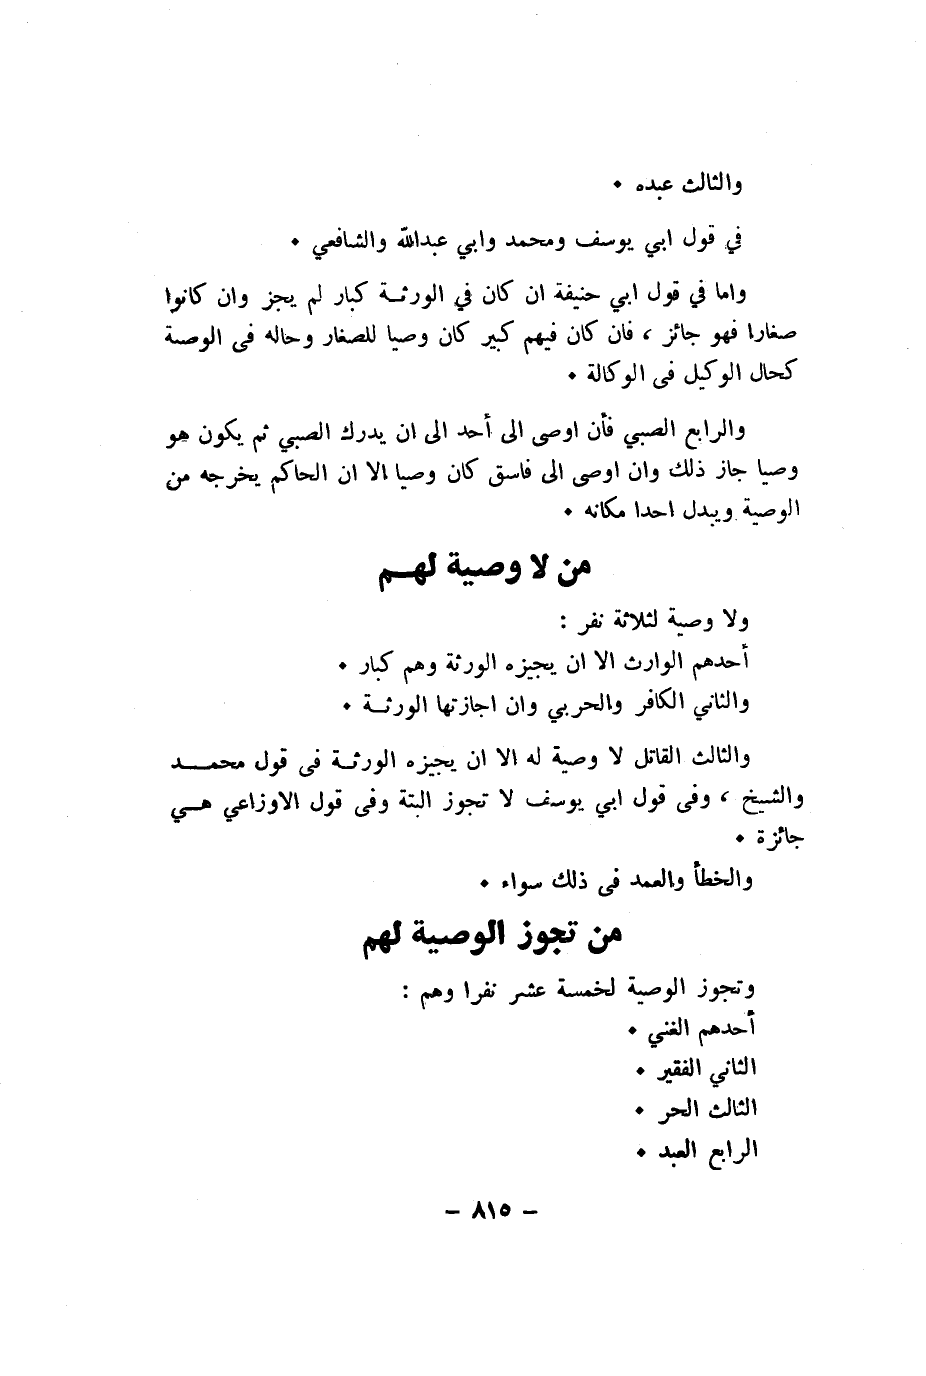 والثالث عبده ٠
في قول ابي يوسف ومحمد وابي عبدالله والشافعي ٠
واما في قول ابي حنيفة ان كان في الورثــة كبار لم يجز وان كانوا
صغارا فهو جائز ، فان كان فيهم كبير كان وصيا للصغار وحاله فى الوصة
كحال الوكيل فى الوكالة ٠
والرابع الصبي فأن اوصى الى أحد الى ان يدرك الصبي ثم يكون هو
وصيا جاز ذلك وان اوصى الى فاسق كان وصيا الا ان الحاكم يخرجه من
الوصية ويبدل احدا مكانه ٠
من لا وصية لهــم
ولا وصية لثلاثة نفر :
أحدهم الوارث الا ان يجيزه الورثة وهم كبار ٠
والثاني الكافر والحربي وان اجازتها الورثــة ٠
والثالث القاتل لا وصية له الا ان يجيزه الورثــة فى قول محمــــد
والشيخ ، وفى قول ابي يوسف لا تجوز البتة وفى قول الاوزاعي هــي
جائزة ٠
والخطأ والعمد فى ذلك سواء ٠
من تجوز الوصية لهم
وتجوز الوصية لخمسة عشر نفرا وهم :
أحدهم الغني ٠
الثاني الفقير ٠
الثالث الحر ٠
الرابع العبد ٠
– ٨١٥ –